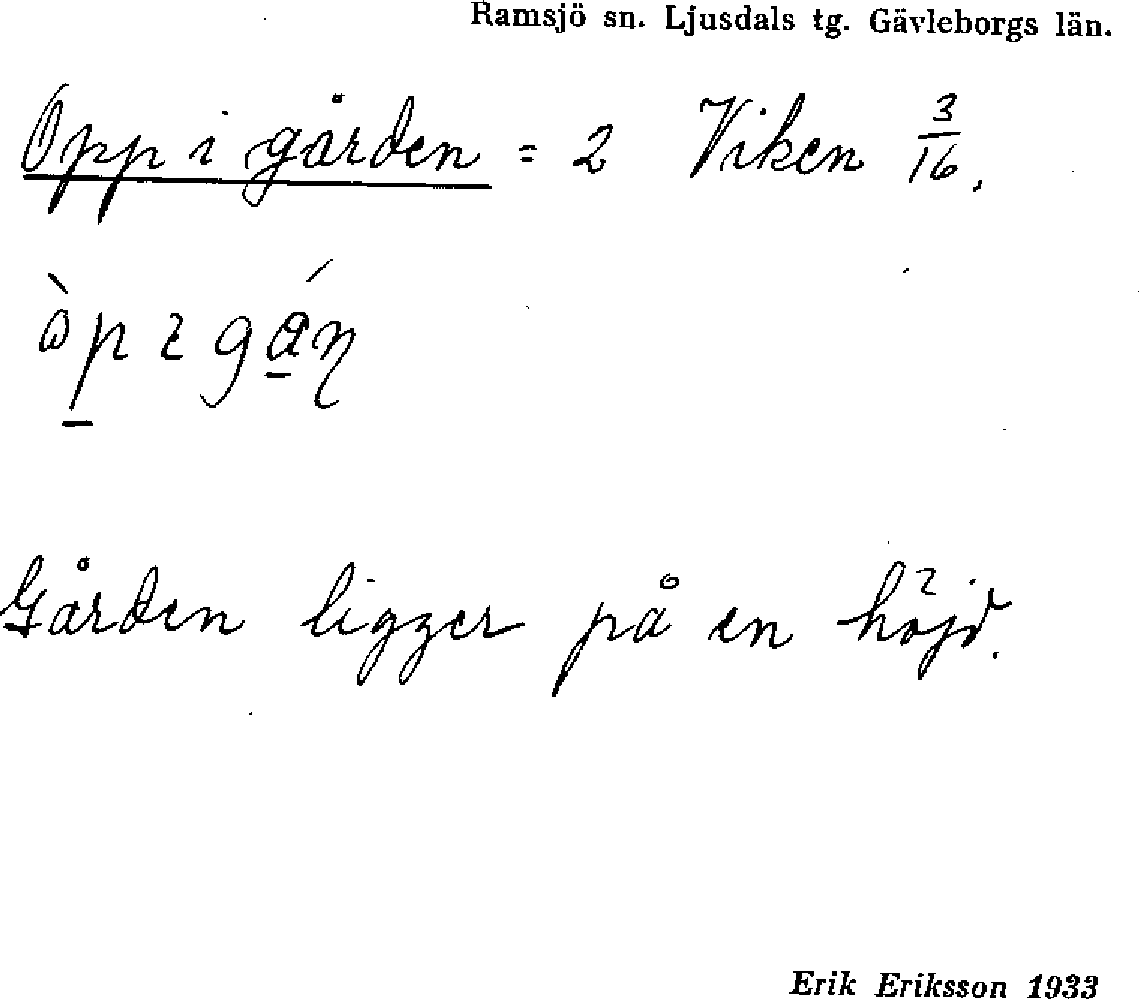 Ramsjö sn. Ljusdals tg. Gävleborgs län.
Opp i gården = 2 Viken 3/16.
Gården ligger på en höjd.
Erik Eriksson 1933